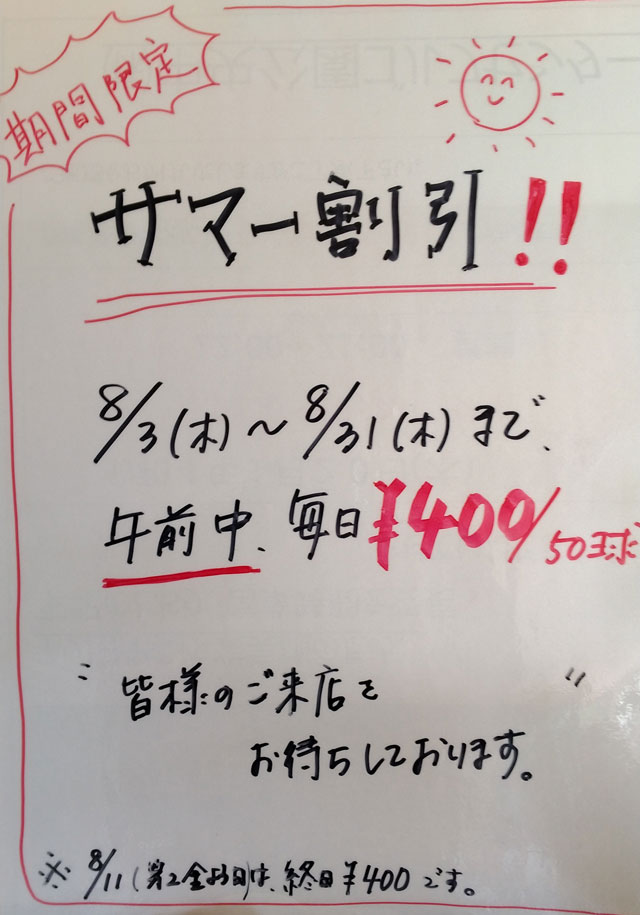 期間限定
サマー割引!!
8/3(木)～8/31(木)まで、
午前中、毎日¥400/50球
"皆様のご来店を
お待ちしております。"
※8/11(第2金よう日)は、終日¥400です。